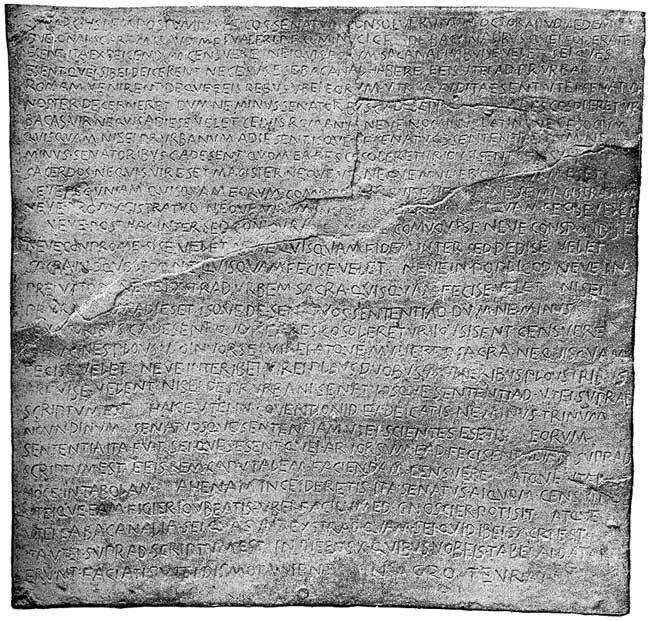 MARCIVS L F S POSTVMIVS L F COS SENATVM CONSOLVERVNT N OCTOB APVD AEDEM
DVELONAI SC ARF M CLAVDI M F L VALERI P F Q MINVCI C F DE BACANALIBVS QVEI FOIDERATEI
ESENT ITA EXDEICENDVM CENSVERE NEIQVIS EORVM BACANAL HABVISE VELET SEI QVES
ESENT QVEI SIBEI DEICERENT NECESVS ESE BACANAL HABERE EEIS VTEI AD PR VRBANVM
ROMAM VENIRENT DEQVE EEIS REBVS VBEI EORVM VTR A AVDITA ESENT VTEI SENATVS
NOSTER DECERNERET DVM NE MINVS SENATORBVS C ADESENT EA RES COSOLORETVR
BACAS VIR NEQVIS ADIESE VELET CEIVIS ROMANVS NEVE NOMINVS LATINI
QVISQVAM NISEI PR VRBANVM ADIESENT ISQVE DE SENATVOS SENTENTIAD DVM NE
MINVS SENATORIBVS C ADESENT QVOM EA RES COSOLERETVR IOVSISENT
SACERDOS NEQVIS VIR ESET MAGISTER NEQVE VIR NEQVE MVLIER ESET
NEVE PECVNIAM QVISQVAM EORVM COMOINEM NEVE MAGISTRATVM
NEVE PRO MAGISTRATVO NEQVE VIRVM FECISE VELET
NEVE POST HAC INTER SED CONIOVRASE COMVOVISE NEVE CONSPONDISE
NEVE CONPROMESISE VELET NEVE QVISQVAM FIDEM INTER SED DEDISE VELET
SACRA IN OQVOLTOD NE QVISQVAM FECISE VELET NEVE IN POPLICOD NEVE IN
PREIVATOD NEVE EXSTRAD VRBEM SACRA QVISQVAM FECISE VELET NISEI
PR VRBANVM ADIESET ISQVE DE SENATVOS SENTENTIAD DVM NE MINVS
SENATORIBVS C ADESENT QVOM EA RES COSOLERETVR IOVSISENT CENSVERE
HOMINES PLOVS V OINVORSEI VIREI ATQVE MVLIERES SACRA NE QVISQVAM
FECISE VELET NEVE INTER IBEI VIREI PLOVS DVOBVS MVLIERIBVS PLOVS TRIBVS
ARFVISE VELENT NISEI DE PR VRBANI SENATVOSQVE SENTENTIAD VTEI SVPRAD
SCRIPTVM EST HAICE VTEI IN COVENTIONID EXDEICATIS NE MINVS TRINVM
NOVNDINVM SENATVOSQVE SENTENTIAM VTEI SCIENTES ESETIS EORVM
SENTENTIA ITA FVIT SEI QVES ESENT QVEI ARVORSVM EAD FECISENT QVAM SVPRAD
SCRIPTVM EST EEIS REM CAPVTALEM FACIENDAM CENSVERE ATQVE VTEI
HOCE IN TABOLAM AHENAM INCEIDERETIS ITA SENATVS AIQVOM CENSVIT
VTEIQVE EAM FIGIER IOVBEATIS VBEI FACILVMED GNOSCIER POTISIT ATQVE
VTEI EA BACANALIA SEI QVA SVNT EXSTRAD QVAM SEI QVID IBEI SACRI EST
ITA VTEI SVPRAD SCRIPTVM EST IN DIEBVS X QVIBVS VOBEIS TABELAI DATAI
ERVNT FACIATIS VTEI DISMOTA SIENT IN AGRO TEVRANO